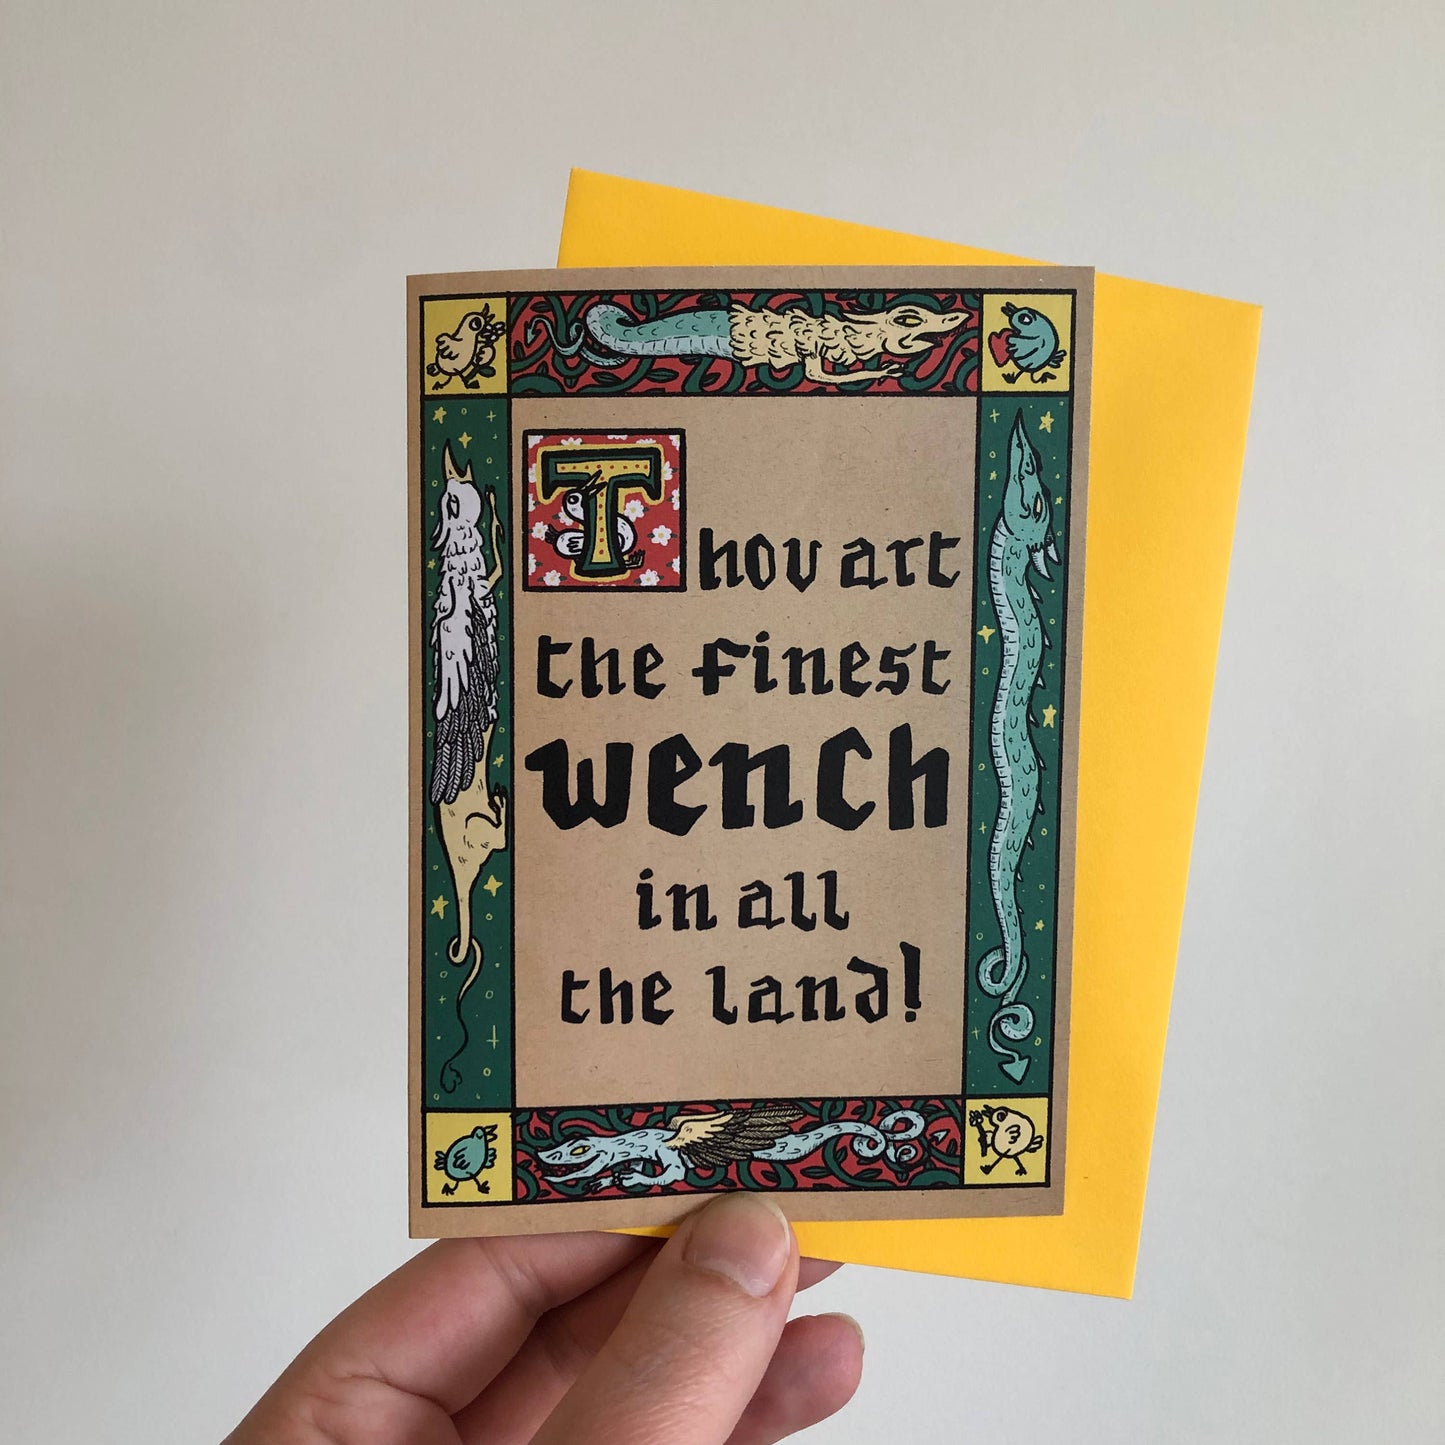 Thou art
the finest
wench
in all
the land!